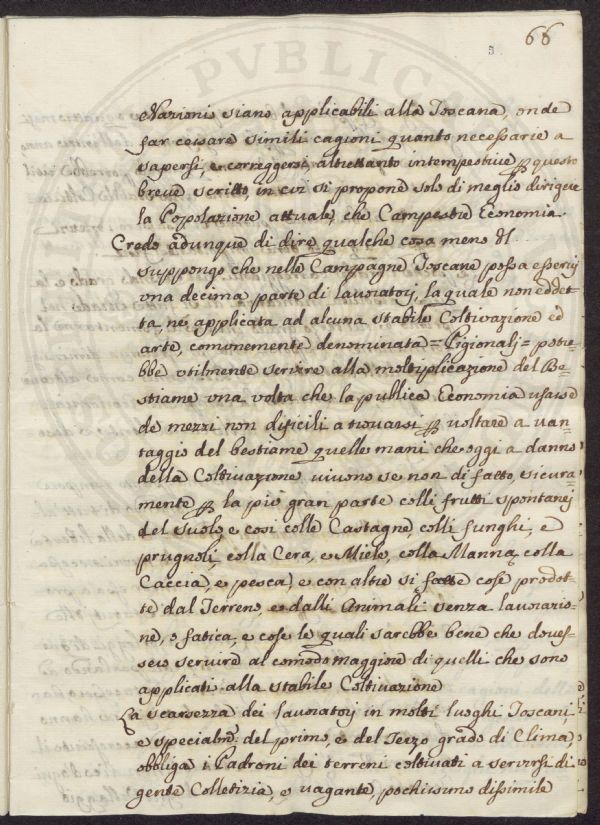 66
Nazioni siano applicabili alla Toscana, onde
far cessare simili cagioni quanto necessarie a
sapersi, e correggersi, altrettanto intempestive ꝑ questo
breve scritto, in cui si propone solo di meglio dirigere
la Popolazione attuale, che Campestre Economia.
Credo adunque di dire qualche cosa meno
suppongo che nelle Campagne Toscane possa esservi
vna decima parte di lavoratorj, la quale non eddet-
ta, ne applicata ad alcuna stabile Coltivazione ed
arte, comunemente denominata = Pigionalj = potre-
bbe vtilmente servire alla moltiplicazione del Be-
stiame vna volta che la publica Economia usasse
de mezzi non dificili a trovarsi ꝑ voltare a van-
taggio del bestiame quelle mani che oggi a danno
della Coltivazione vivono se non di fatto, sicura-
mente ꝑ la più gran parte colli frutti spontanej
del suolo, e così colle Castagne, colli funghi, e
prugnoli, colla Cera, e Miele, colla Manna, colla
Caccia, e pesca, e con altre si fatte cose prodot-
te dal Terreno, e dalli Animali senza lavorazio-
ne, o fatica, e cose le quali sarebbe bene che doves-
sero servire al comodo maggiore di quelli che sono
applicati alla stabile Coltivazione
La scarsezza dei lavoratorj in molti luoghi Toscani
e specialmẽ. del primo, e del Terzo grado di Clima,
obbliga i Padroni dei terreni coltivati a servirsi di
gente Colletizia, e vagante, pochissimo dissimile
PVBLICA